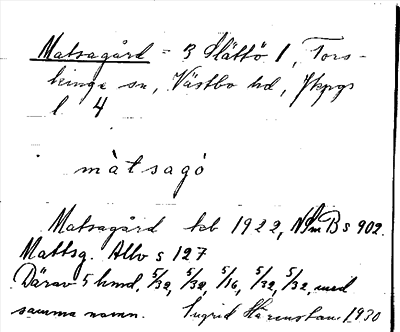 Matsagård - 3 Slättö 1, Tors-
kinge sn, Västbo hd, Jkpgs
l. 4
màtsagó
Matsagård kb 1922, NSmB s 902.
Mattsg. Allv s 127
Därav 5 hmd, 5/32, 5/32, 5/16, 5/32, 5/32, med
samma namn. Ingrid 1930